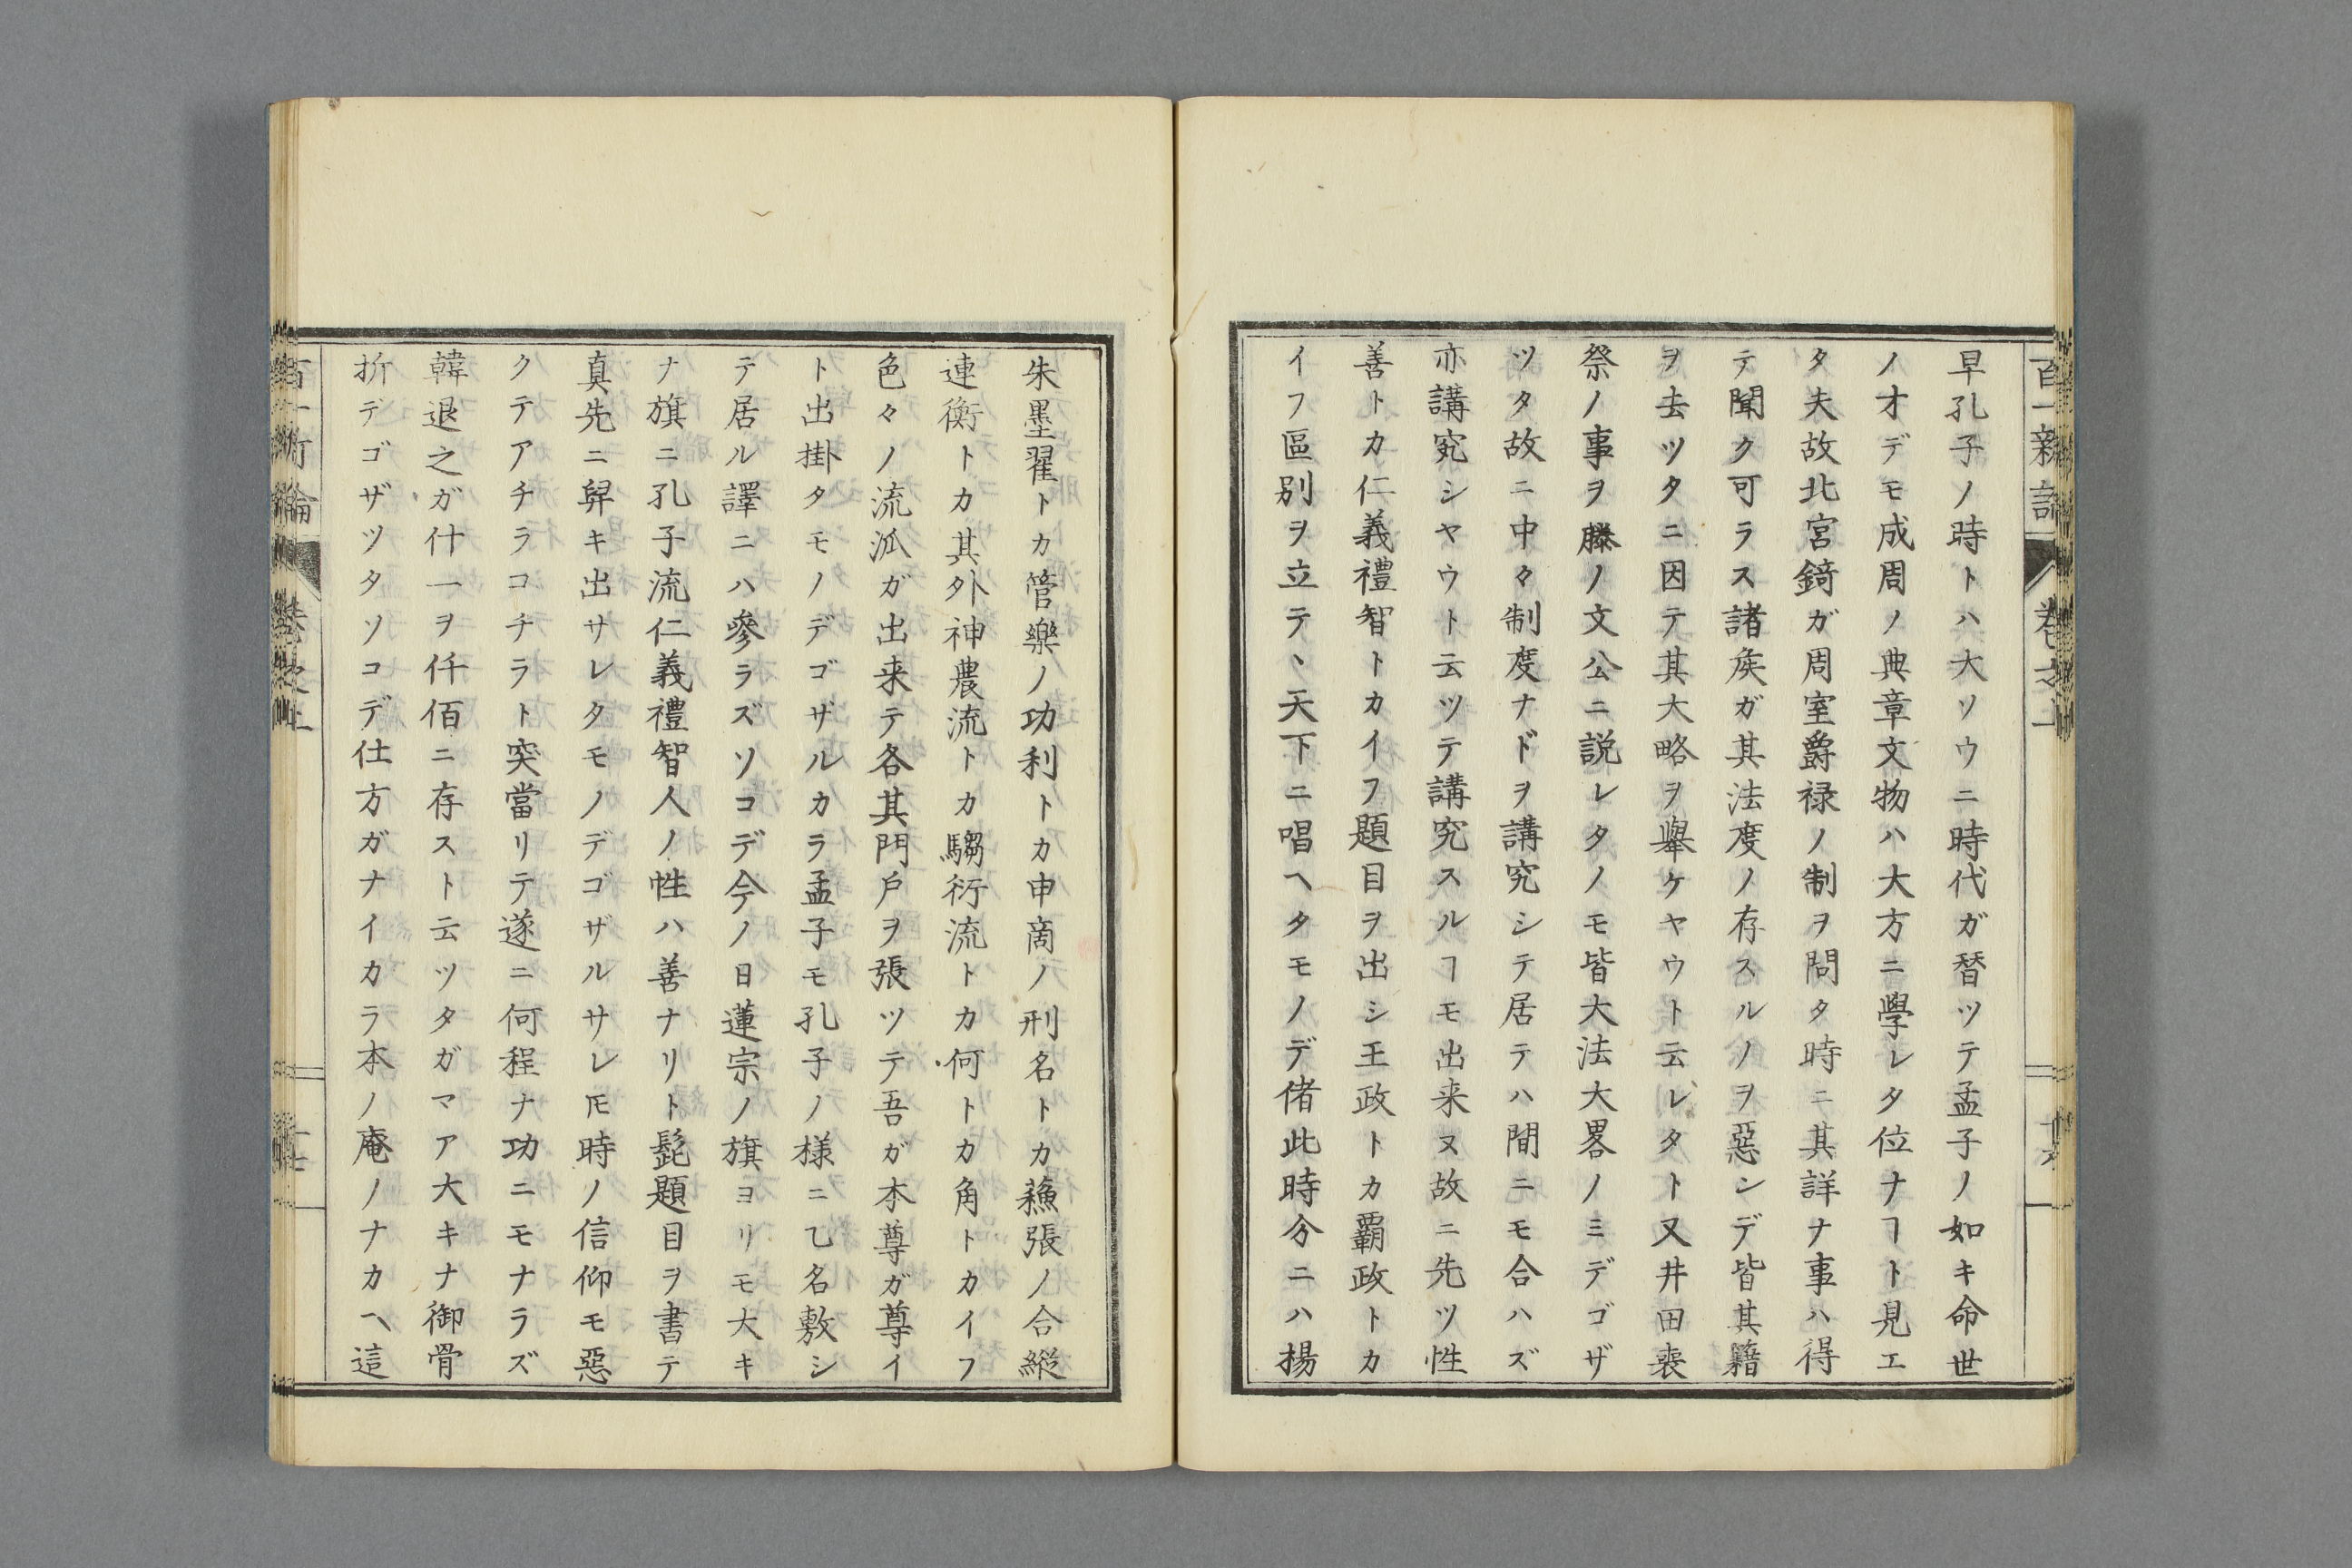 百一新論 卷之上
早孔子ノ時トハ大ソウニ時代ガ替ツテ孟子ノ如キ命世
ノオデモ成周ノ典章文物ハ大方ニ學レタ位ナヿト見エ
タ夫故北宮錡ガ周室爵禄ノ制ヲ問タ時ニ其詳ナ事ハ得
テ聞ク可ラス諸矦ガ其法度ノ存スルノヲ惡ンデ皆其籍
ヲ去ツタニ因テ其大略ヲ擧ケヤウト云レタト又井田喪
祭ノ事ヲ滕ノ文公ニ説レタノモ皆大法大畧ノミデゴザ
ツタ故ニ中々制度ナドヲ講究シテ居テハ間ニモ合ハズ
亦講究シヤウト云ツテ講究スルヿモ出来ヌ故ニ先ツ性
善トカ仁義禮智トカイフ題目ヲ出シ王政トカ覇政トカ
イフ區別ヲ立テヽ天下ニ唱ヘタモノデ偖此時分ニハ揚
朱墨翟トカ管樂ノ功利トカ申商ノ刑名トカ蘓張ノ合縱
連衡トカ其外神農流トカ騶衍流トカ何トカ角トカイフ
色々ノ流派ガ出来テ各其門戶ヲ張ツテ吾ガ本尊ガ尊イ
ト出掛タモノデゴザルカラ孟子モ孔子ノ様ニ乙名敷シ
テ居ル譯ニハ參ラズソコデ今ノ日蓮宗ノ旗ヨリモ大キ
ナ旗ニ孔子流仁義禮智人ノ性ハ善ナリト髭題目ヲ書テ
真先ニ舁キ出サレタモノデゴザルサレ𪜈時ノ信仰モ惡
クテアチラコチラト突當リテ遂ニ何程ナ功ニモナラズ
韓退之ガ什一ヲ仟佰ニ存スト云ツタガマア大キナ御骨
折デゴザツタソコデ仕方ガナイカラ本ノ庵ノナカヘ這
百一新論 卷之上